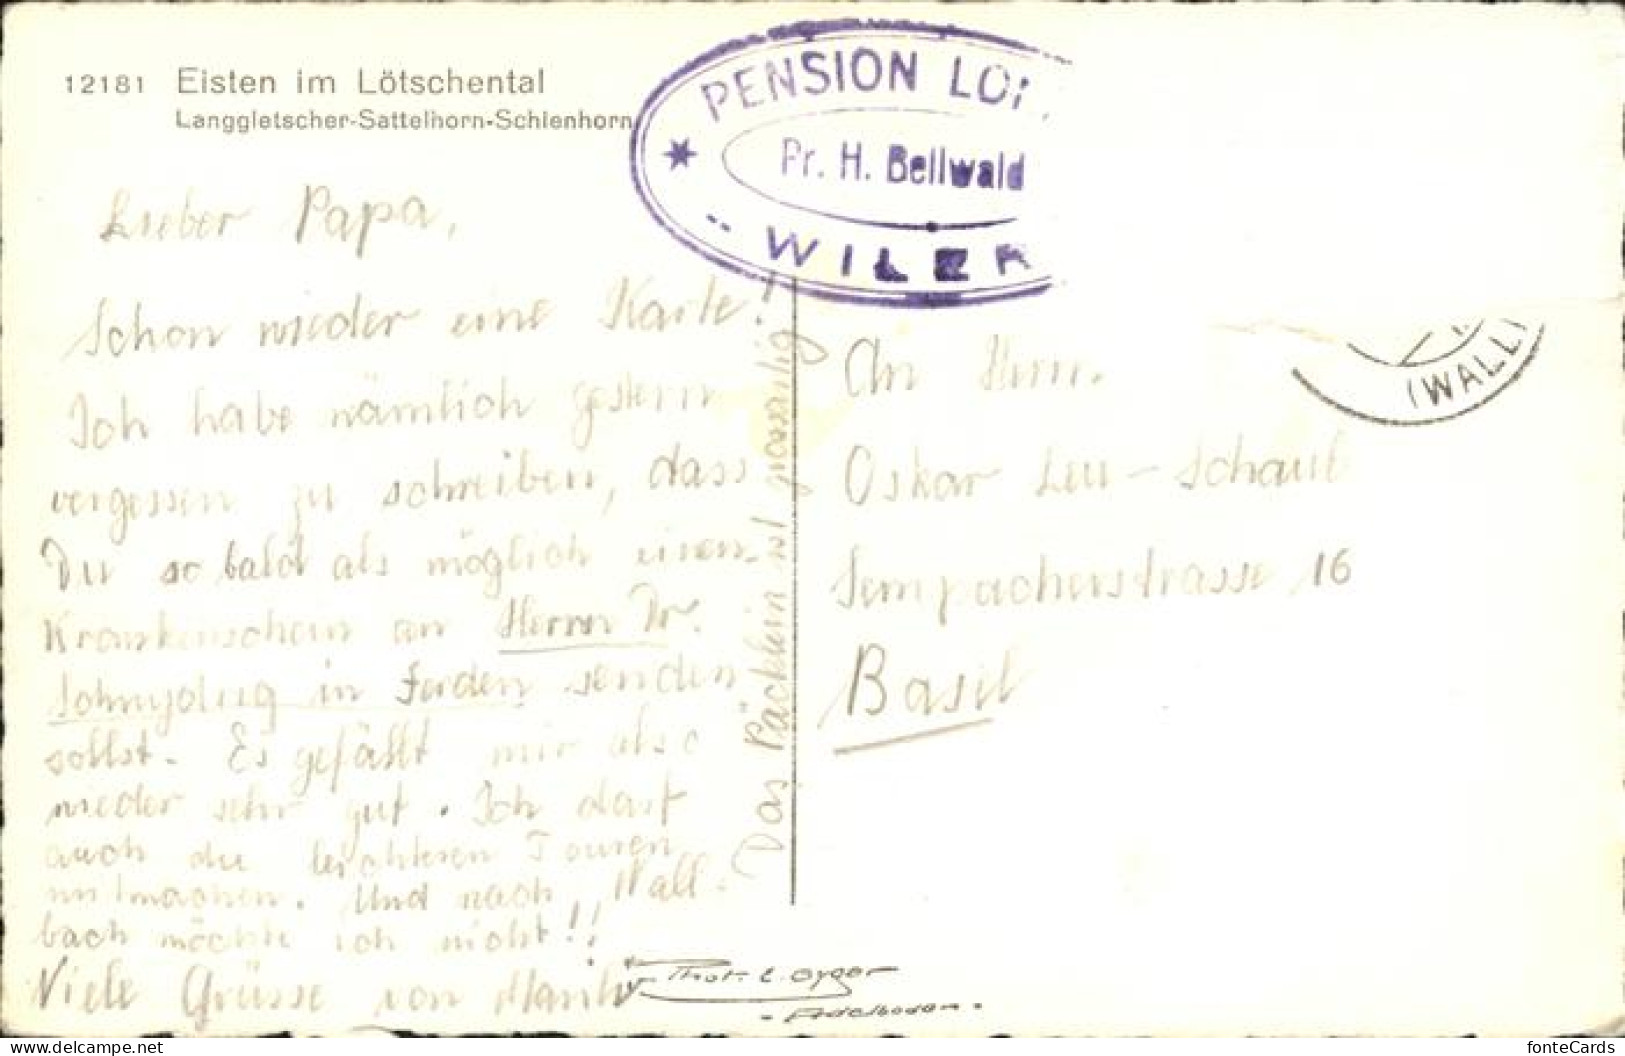 12181 Eisten im Lötschental
Langgletscher-Sattelhorn-Schienhorn
PENSION LÖ
Pr. H. Bellwald
WILER
(WALLI
Lieber Papa,
Schon wieder eine Karte!
Ich habe nämlich gestern
vergessen zu schreiben, dass
Du so bald als möglich einen
Krankenschein an Herrn Dr.
in Ferden senden
sollst. Es gefällt mir also
wieder sehr gut. Ich darf
auch die leichteren Touren
mitmachen. Und nach Wall-
bach möchte ich nicht!!
Viele Grüsse von
Das Päcklein ist prossartig
An Herrn
Oskar Leu-Schaub
Sempacherstrasse 16
Basel
Phot. E. Gyger
- Adelboden -
delcampe.net
fonteCards